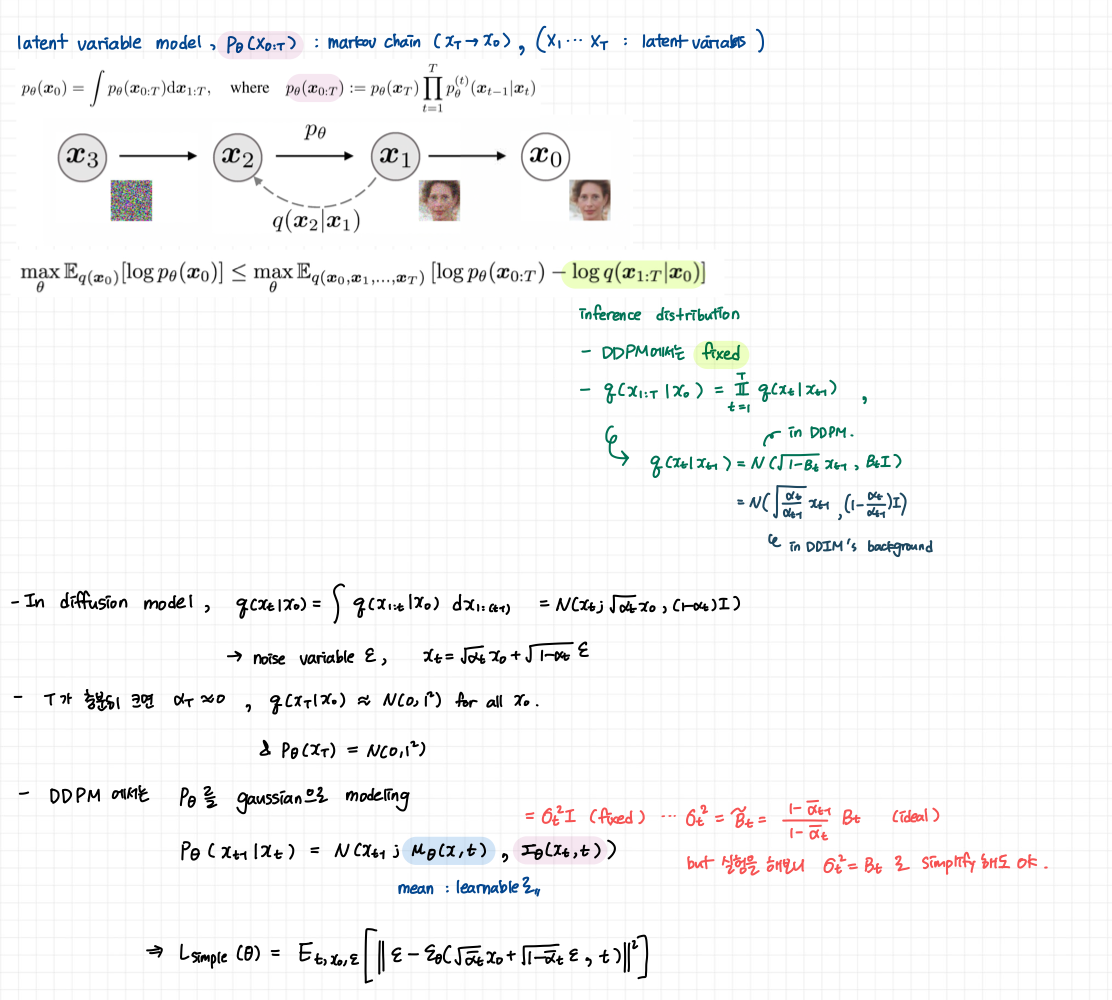 latent variable model, Pθ(x₀:T) : markov chain (x_T → x₀), (x₁ ⋯ x_T : latent variables)
pθ(x₀) = ∫ pθ(x₀:T)dx₁:T, where pθ(x₀:T) := pθ(x_T) ∏_{t=1}^{T} pθ^{(t)}(x_{t−1}|x_t)
pθ
x₃ x₂ x₁ x₀
q(x₂|x₁)
max_θ 𝔼_{q(x₀)}[log pθ(x₀)] ≤ max_θ 𝔼_{q(x₀,x₁,...,x_T)} [log pθ(x₀:T) − log q(x₁:T|x₀)]
inference distribution
- DDPM에서는 fixed
- q(x₁:T|x₀) = ∏_{t=1}^{T} q(x_t|x_{t-1}) ,
in DDPM.
q(x_t|x_{t-1}) = N(√(1-β_t) x_{t-1}, β_t I)
= N(√(α_t/α_{t-1}) x_{t-1}, (1-α_t/α_{t-1})I)
in DDIM's background
- In diffusion model, q(x_t|x₀) = ∫ q(x_{1:t}|x₀) dx_{1:(t-1)} = N(x_t; √α_t x₀, (1-α_t)I)
→ noise variable ε, x_t = √α_t x₀ + √(1-α_t) ε
- T가 충분히 크면 α_T ≈ 0 , q(x_T|x₀) ≈ N(0, 1²) for all x₀.
& Pθ(x_T) = N(0, 1²)
- DDPM 에서는 Pθ를 gaussian으로 modeling
= σ_t² I (fixed) ⋯ σ_t² = β̃_t = (1-ᾱ_{t-1})/(1-ᾱ_t) β_t (ideal)
Pθ(x_{t-1}|x_t) = N(x_{t-1}; μθ(x,t), Σθ(x_t,t))
but 실험을 해보니 σ_t² = β_t 로 simplify 해도 OK.
mean : learnable로,,
⇒ L_simple(θ) = E_{t,x₀,ε}[‖ε - εθ(√ᾱ_t x₀ + √(1-ᾱ_t) ε, t)‖²]